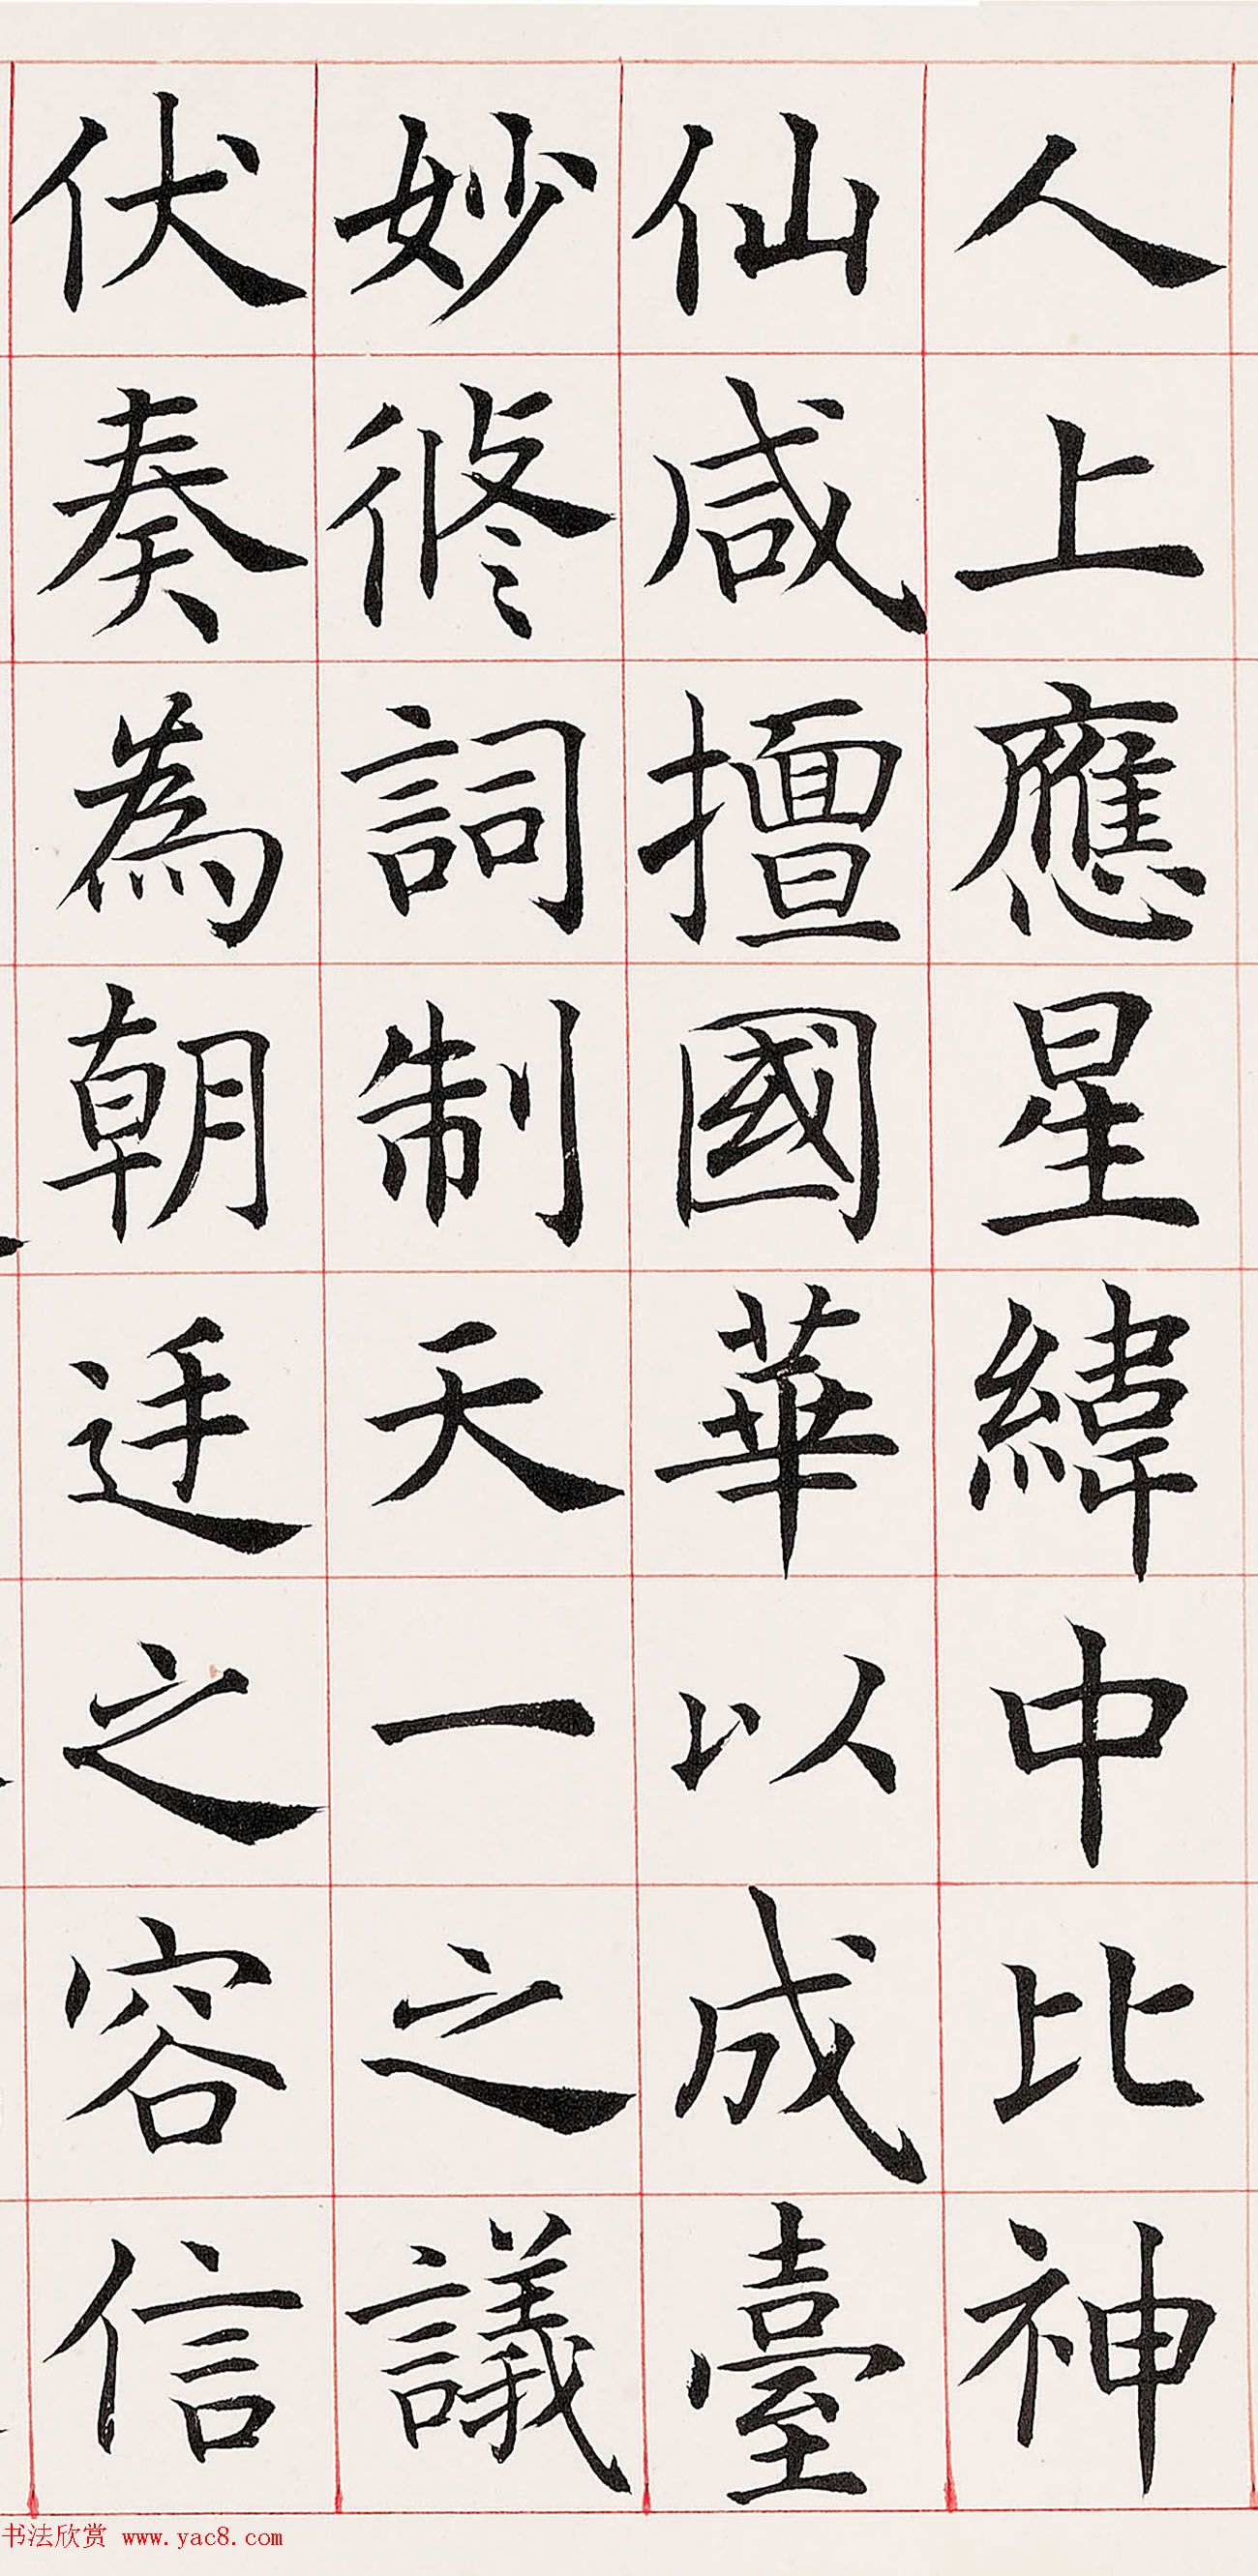 人上應星緯中比神
仙咸擅國華以成臺
妙修詞制天一之議
伏奏為朝廷之容信
书法欣赏 www.yac8.com